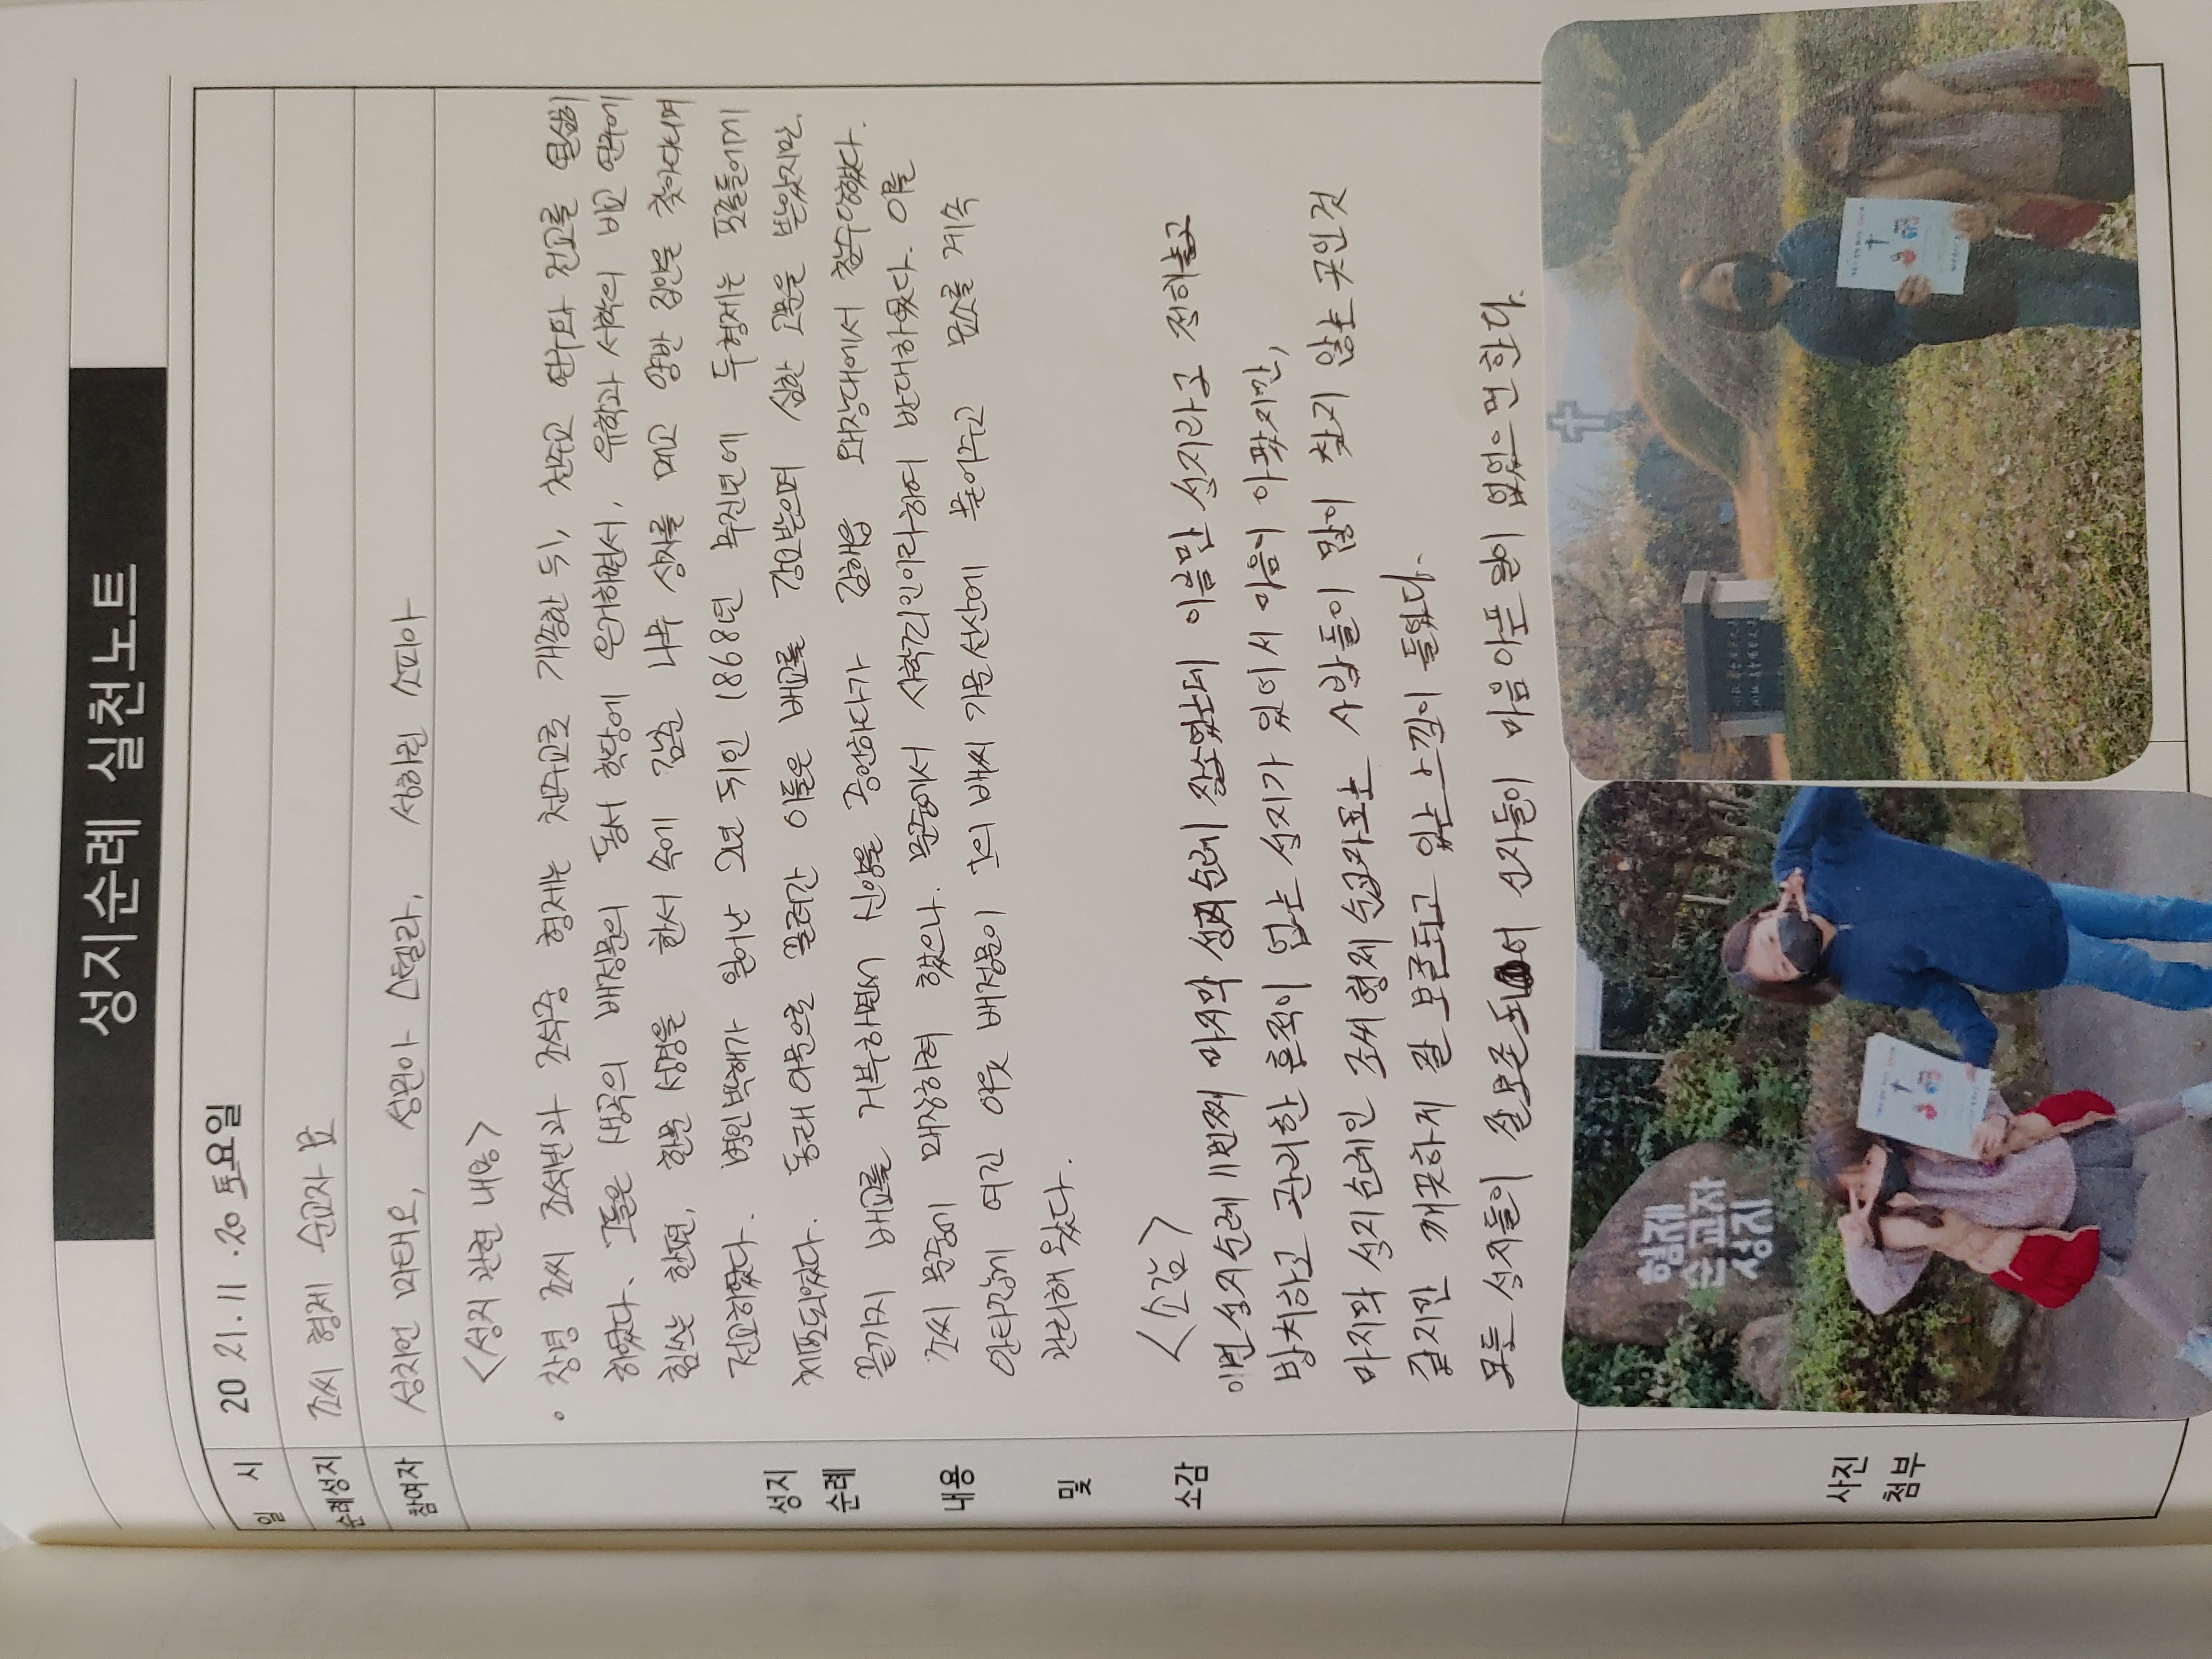 성지순례 실천노트
일 시
20 21. 11 .20 토요일
순례성지
조씨 형제 순교자 묘
참여자
성치언 마태오, 성민아 스텔라, 성하린 소피아
성지
순례
내용
및
소감
<성지 관련 내용>
• 창녕 조씨 조석빈과 조석증 형제는 천주교로 개종한 뒤, 천주교 연구와 전교를 열심히
하였다. 그들은 생곡의 배정문의 동서 학당에 은거하면서, 유학과 서학의 비교 연구에
힘쓰는 한편, 한문 성경을 한서 속에 감춘 나무 상자를 메고 양반 집안을 찾아다니며
전교하였다. 병인박해가 일어난 2년 뒤인 1868년 무진년에 두형제는 포졸들에게
체포되었다. 동래 아문으로 끌려간 이들은 배교를 강요받으며 심한 고문을 받았지만.
끝까지 배교를 거부하면서 신앙을 증언하다가 김해읍 왜장대에서 참수당했다.
조씨 문중에 매장하려 했으나. 문중에서 사학죄인이라하여 반대하였다. 이를
안타깝게 여긴 이웃 배정문이 그의 배씨 가문 선산에 묻어주고 묘소를 계속
관리해 왔다.
<소감>
이번 성지순례 11번째 마지막 성지순례 장소였는데 이름만 성지라고 정해놓고
방치하고 관리한 흔적이 없는 성지가 있어서 마음이 아팠지만,
마지막 성지순례인 조씨형제 순교자묘는 사람들이 많이 찾지 않는 곳인것
같지만 깨끗하게 잘 보존되고 있는 느낌이 들었다.
모든 성지들이 잘보존되어 신자들이 마음아픈 일이 없었으면 한다.
사진
첨부
형제
순교자
성지